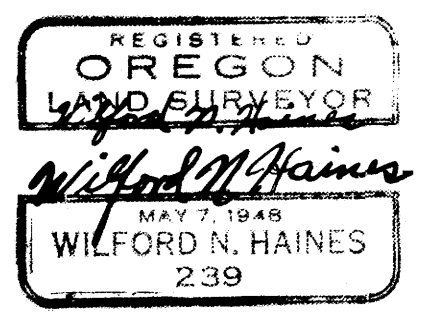 REGISTERED
OREGON
LAND SURVEYOR
Wilford N. Haines
Wilford N Haines
MAY 7, 1948
WILFORD N. HAINES
239